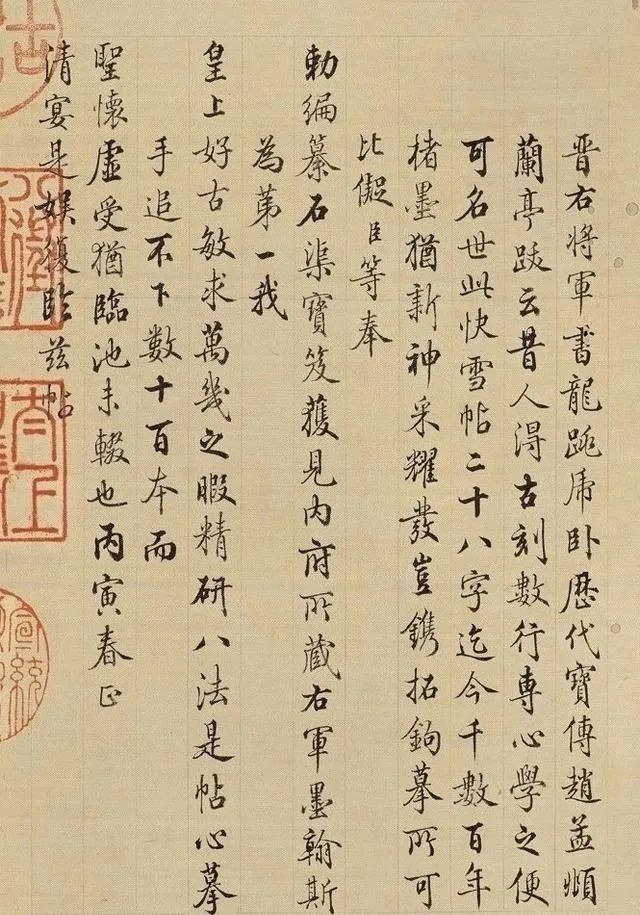 晋右将軍書龍跳席卧歴代寶傳趙孟頫
蘭亭跋云昔人淂古刻數行専心學之便
可名世此快雪帖二十八字迄今千數百年
楮墨猶新神采耀發豈鐫拓鉤摹所可
比儗臣等奉
勅編纂石渠寶笈獲見内府所蔵右軍墨翰斯
為第一我
皇上好古敏求萬幾之暇精研八法是帖心摹
手追不下數十百本而
聖懷虛受猶臨池未輟也丙寅春正
清宴是娱復臨兹帖
宣統